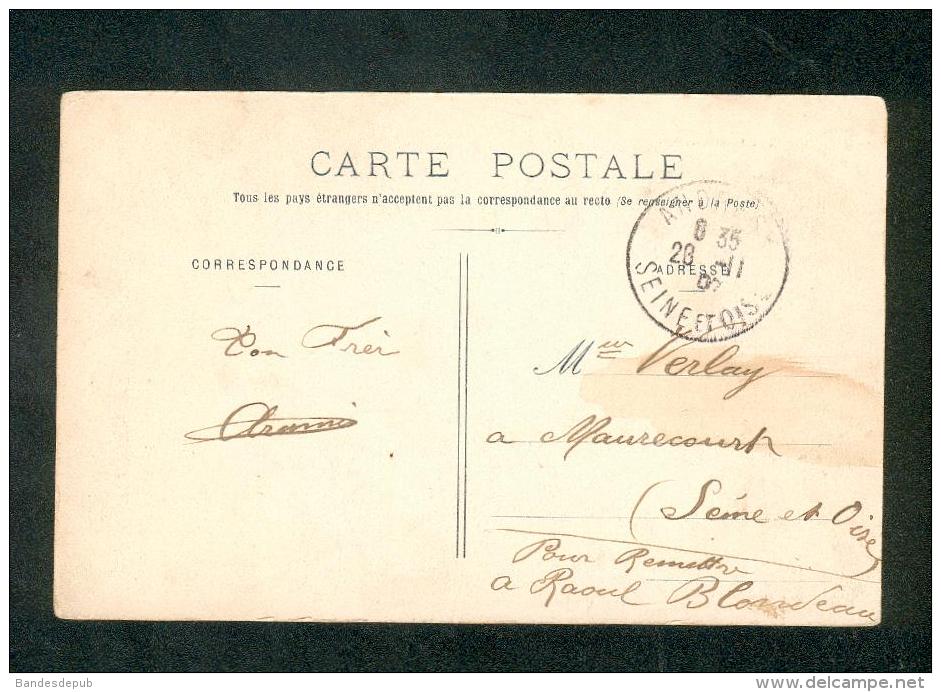 CARTE POSTALE
Tous les pays étrangers n'acceptent pas la correspondance au recto (Se renseigner à la Poste)
8 35
SEINE ET OISE
CORRESPONDANCE
ADRESSE
Ton Frèr
Verlay
a Maurecourt
(Seine et Oise
Pour Remettre
a Raoul Blondeau
Bandesdepub
www.delcampe.net